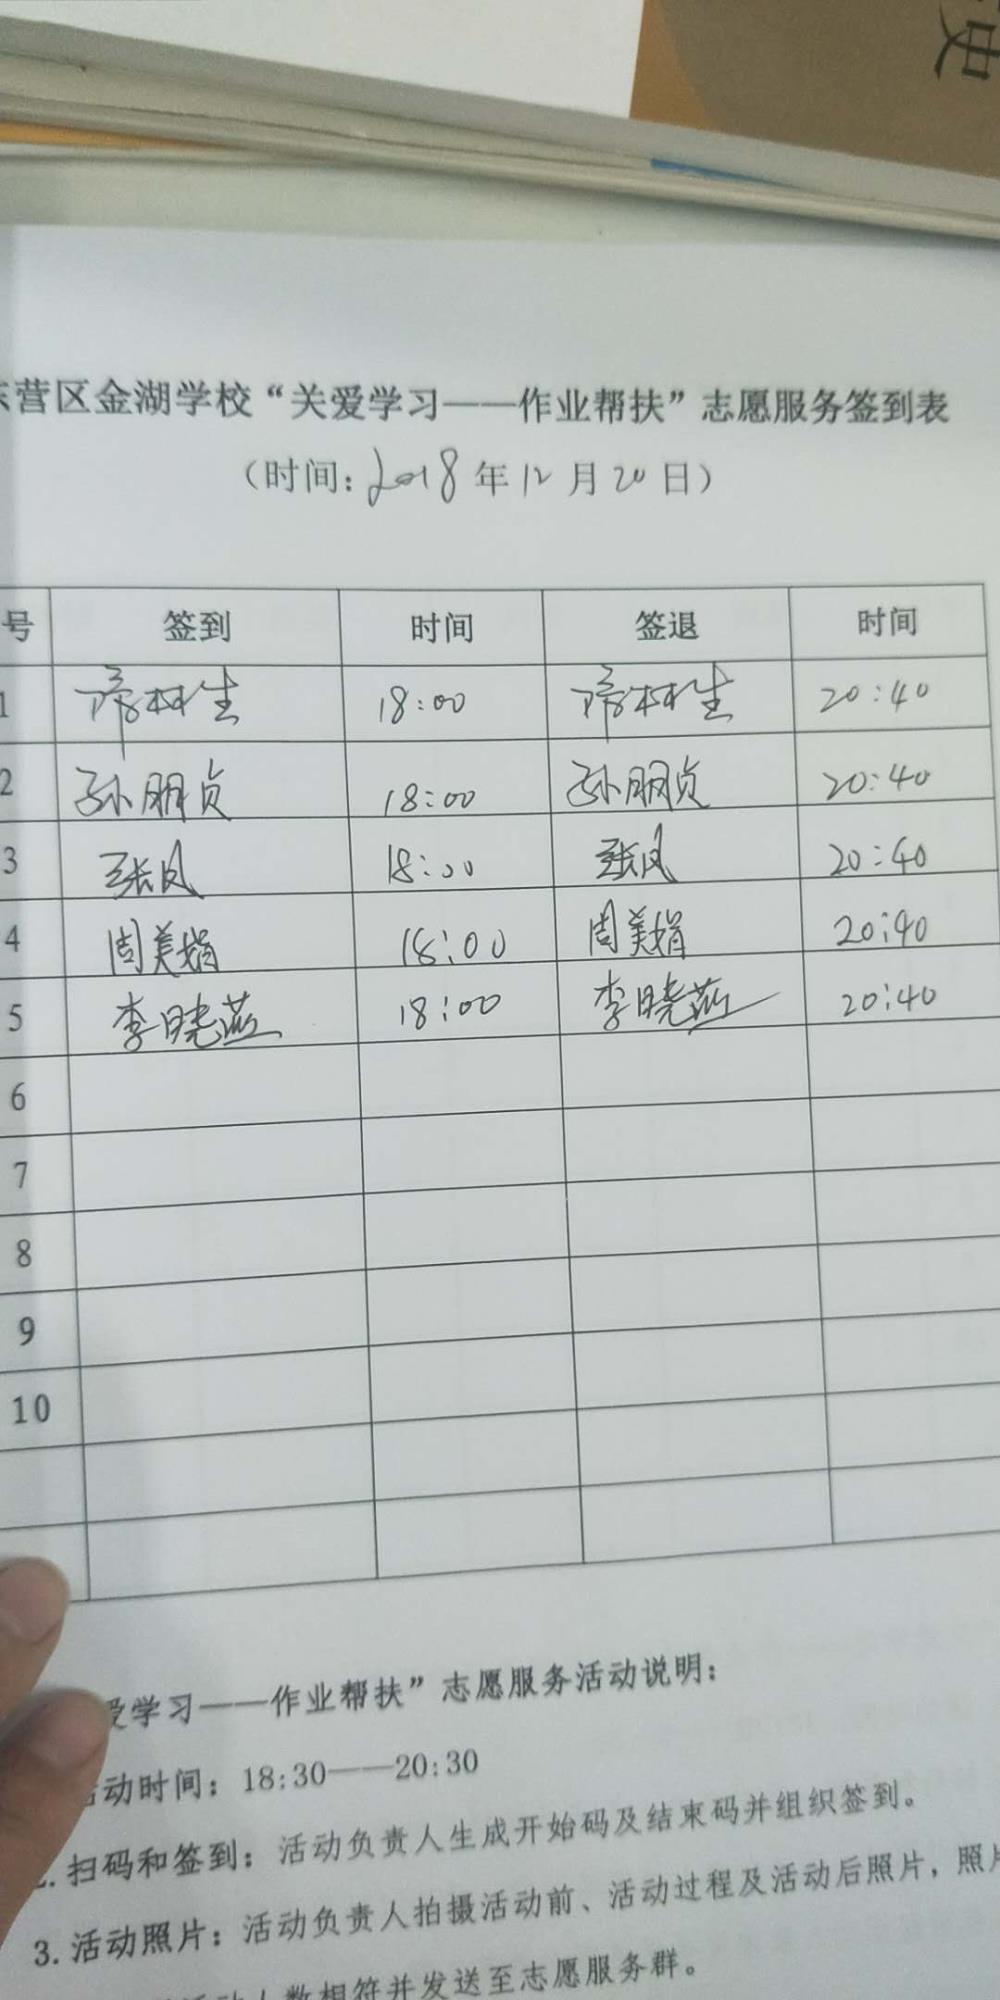 史
营区金湖学校“关爱学习——作业帮扶”志愿服务签到表
（时间：2018年12月20日）
号 签到 时间 签退 时间
1 18:00 20:40
2 孙朋贞 18:00 孙朋贞 20:40
3 张凤 18:00 张凤 20:40
4 周美娟 18:00 周美娟 20:40
5 李晓燕 18:00 李晓燕 20:40
6
7
8
9
10
爱学习——作业帮扶”志愿服务活动说明：
动时间：18:30——20:30
2. 扫码和签到：活动负责人生成开始码及结束码并组织签到。
3. 活动照片：活动负责人拍摄活动前、活动过程及活动后照片，照片
活动人数相符并发送至志愿服务群。